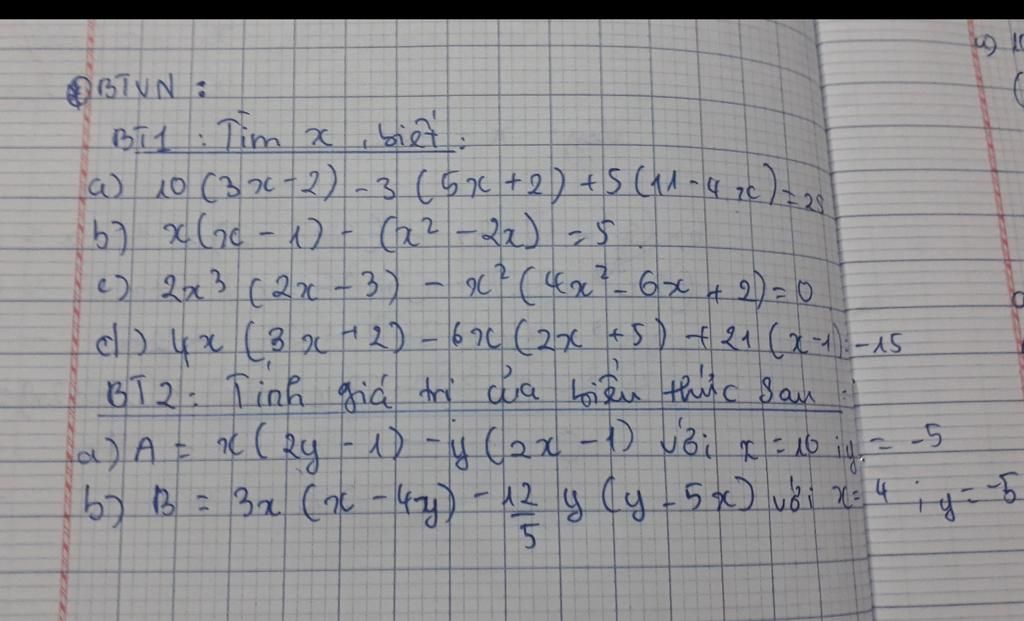 BTVN :
BT1 : Tìm x, biết :
a) 10 (3x - 2) - 3 (5x + 2) + 5 (11 - 4x) = 25
b) x(x - 1) - (x² - 2x) = 5
c) 2x³ (2x - 3) - x² (4x² - 6x + 2) = 0
d) 4x (3x + 2) - 6x (2x + 5) + 21 (x - 1) = -15
BT2 : Tính giá trị của biểu thức sau :
a) A = x(2y - 1) - y(2x - 1) với x = 10 ; y = -5
b) B = 3x (x - 4y) - 12/5 y (y - 5x) với x = 4 ; y = -5
a)